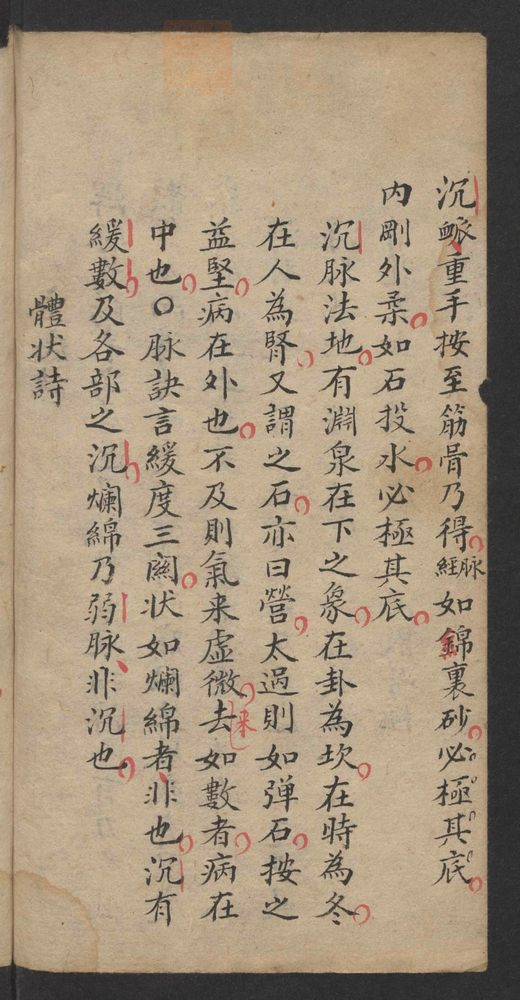 沉衇重手按至筋骨乃得脉經如錦裏砂必極其底
内剛外柔如石投水必極其底
沉脉法地有淵泉在下之象在卦為坎在時為冬
在人為腎又謂之石亦曰營太過則如弹石按之
益堅病在外也不及則氣来虚微去如數者病在
中也〇脉訣言緩度三関状如爛綿者非也沉有
緩數及各部之沉爛綿乃弱脉非沉也
體状詩